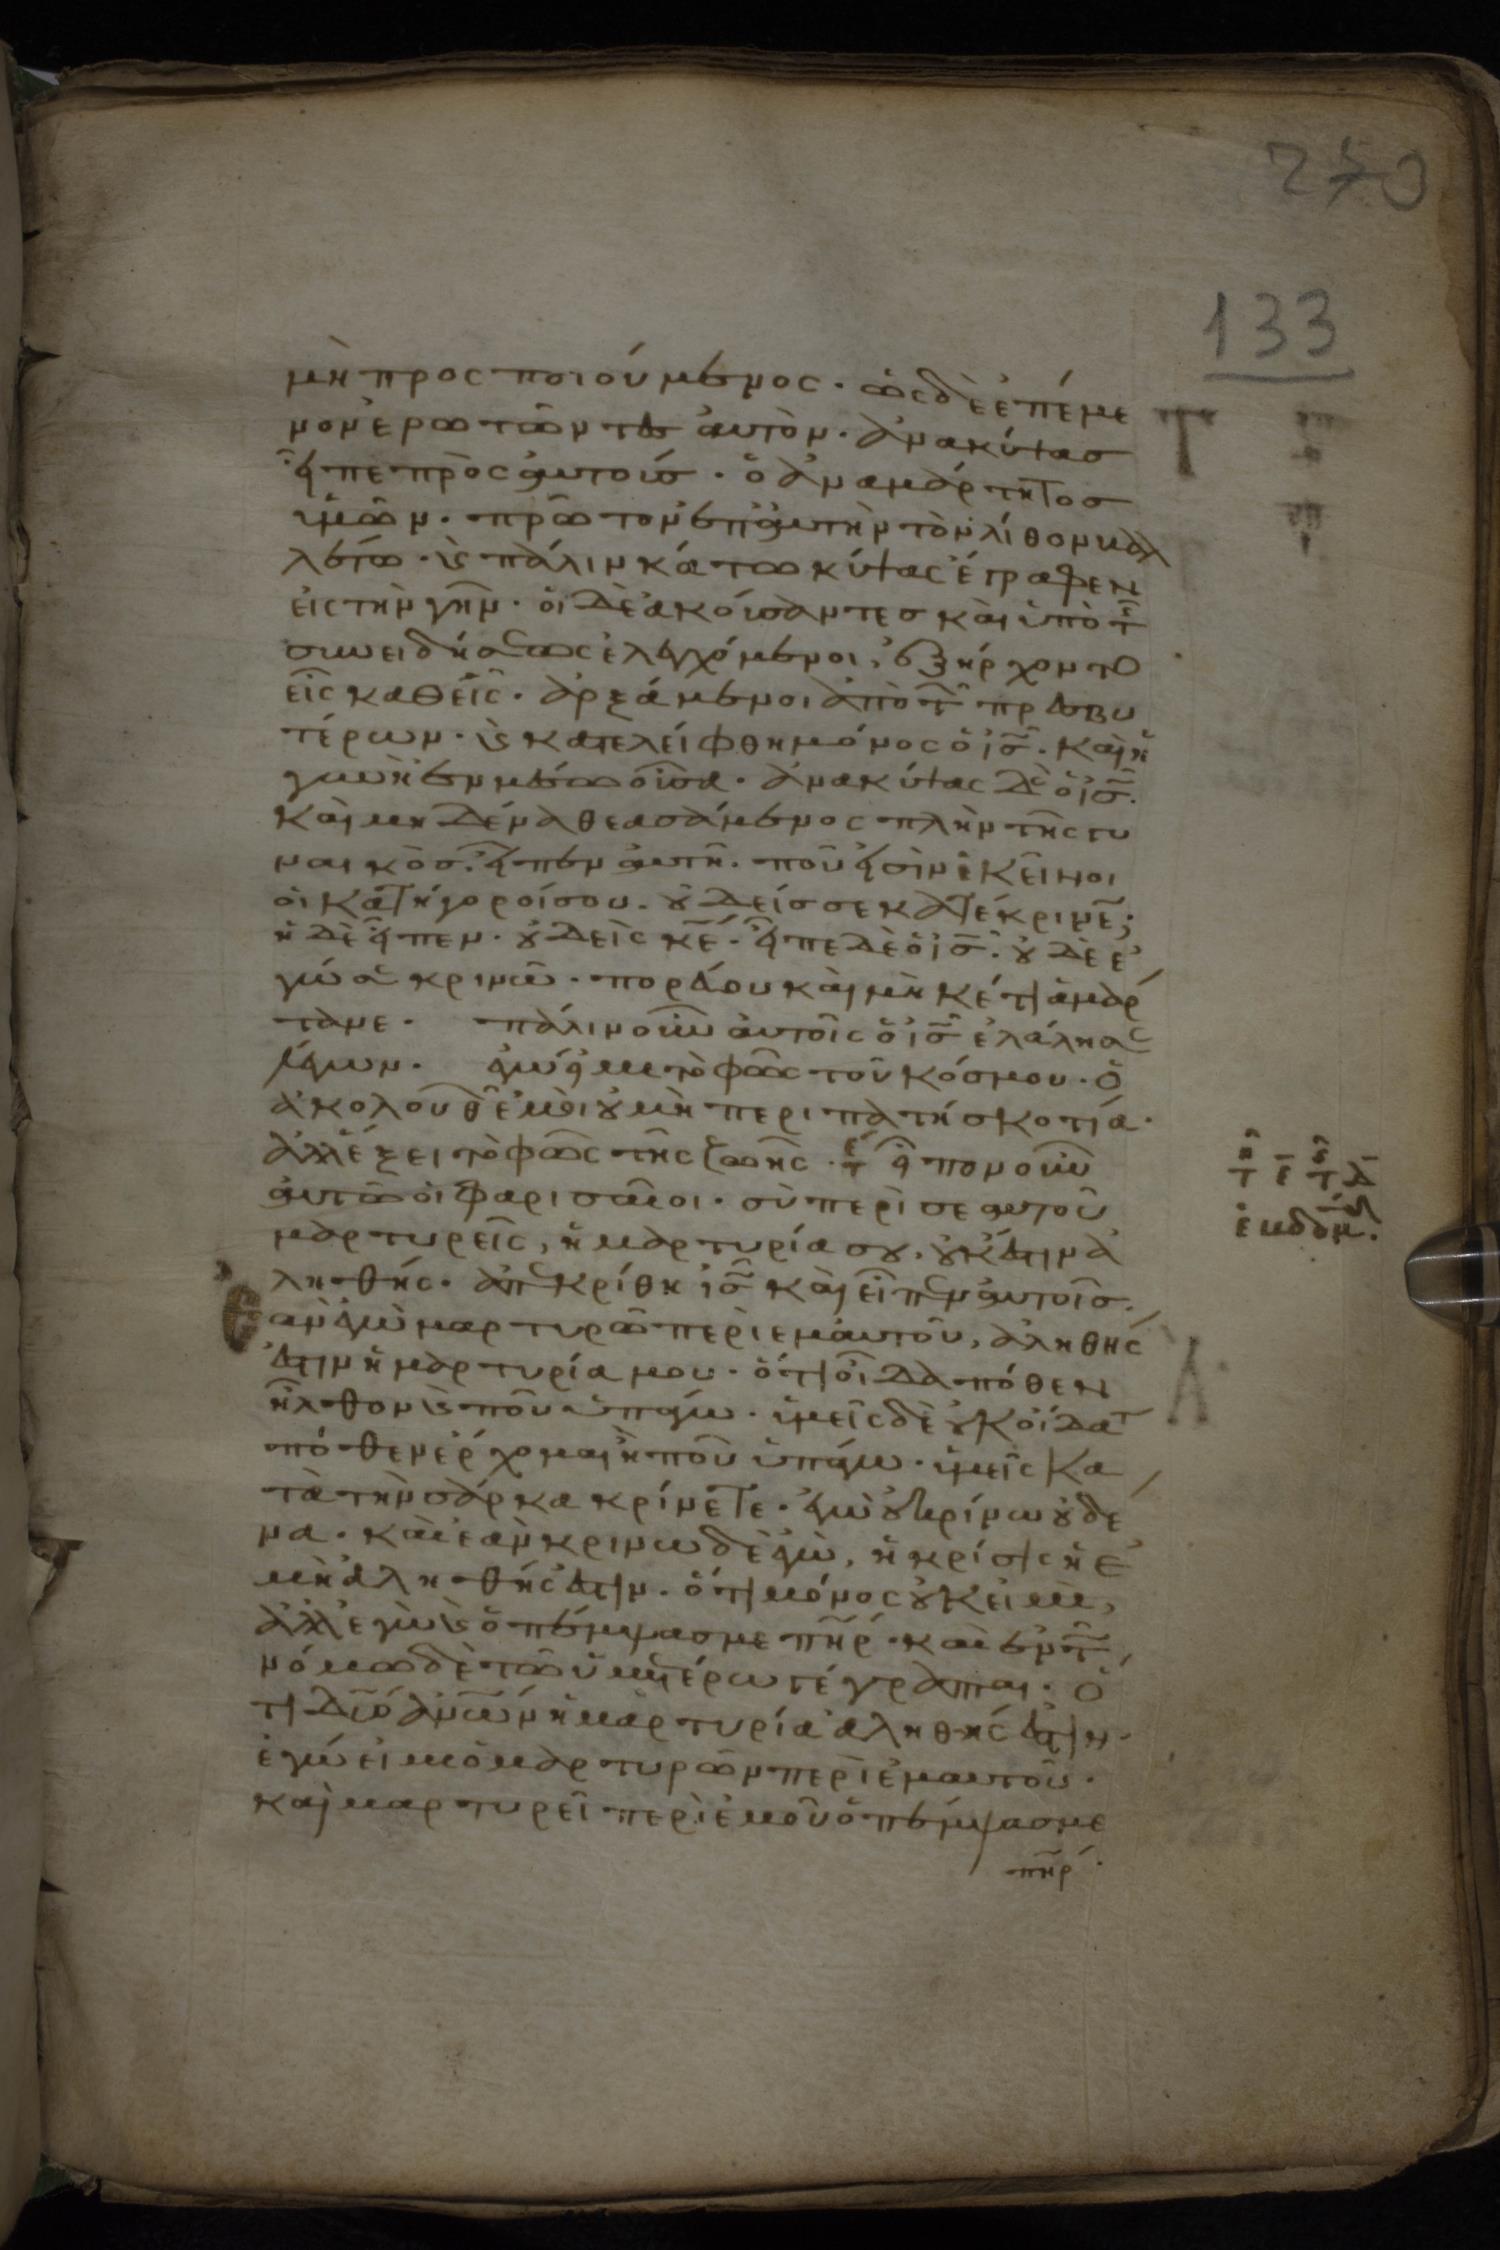 270
133
μὴ προσποιούμενος · ὡς δὲ ἐπέμε
νον ἐρωτῶντες αὐτὸν · ἀνακύψας
εἶπε πρὸς αὐτούς · ὁ ἀναμάρτητος
ὑμῶν · πρῶτον ἐπ' αὐτὴν τὸν λίθον βα
λέτω · καὶ πάλιν κάτω κύψας ἔγραφεν
εἰς τὴν γῆν · οἱ δὲ ἀκούσαντες καὶ ὑπὸ τῆς
συνειδήσεως ἐλεγχόμενοι, ἐξήρχοντο
εἷς καθεῖς · ἀρξάμενοι ἀπὸ τῶν πρεσβυ
τέρων · καὶ κατελείφθη μόνος ὁ ις̅ · καὶ ἡ
γυνὴ ἐν μέσω οὖσα · ἀνακύψας δὲ ὁ ις̅ ·
καὶ μηδένα θεασάμενος πλὴν τῆς γυ
ναικός · εἶπεν αὐτῆ · ποῦ εἰσὶν ἐκεῖνοι
οἱ κατήγοροί σου · οὐδείς σε κατέκρινεν;
ἡ δὲ εἶπεν · οὐδεὶς κε̅ · εἶπε δὲ ὁ ις̅ · οὐδὲ ἐ
γώ σε κρινῶ · πορεύου καὶ μηκέτι ἁμάρ
τανε · πάλιν οὖν αὐτοῖς ὁ ις̅ ἐλάλησε
λέγων · ἐγώ εἰμι τὸ φῶς τοῦ κόσμου · ὁ
ἀκολουθῶν ἐμοὶ οὐ μὴ περιπατήσει σκοτία ·
ἀλλ' ἕξει τὸ φῶς τῆς ζωῆς · τε εἶπον οὖν
αὐτῶ οἱ φαρισαῖοι · σὺ περὶ σεαυτοῦ
μαρτυρεῖς, ἡ μαρτυρία σου, οὐκ ἔστιν ἀ
ληθής · ἀπεκρίθη ις̅ καὶ εἶπεν αὐτοῖς ·
κἂν ἐγὼ μαρτυρῶ περὶ ἐμαυτοῦ, ἀληθής
ἐστιν ἡ μαρτυρία μου · ὅτι οἶδα πόθεν
ἦλθον καὶ ποῦ ὑπάγω · ὑμεῖς δὲ οὐκ οἴδατε
πόθεν ἔρχομαι ἢ ποῦ ὑπάγω · ὑμεῖς κα
τὰ τὴν σάρκα κρίνετε · ἐγὼ οὐ κρίνω οὐδέ
να · καὶ ἐὰν κρίνω δὲ ἐγώ, ἡ κρίσις ἡ ἐ
μὴ ἀληθής ἐστιν · ὅτι μόνος οὐκ εἰμί,
ἀλλ' ἐγὼ καὶ ὁ πέμψας με πη̅ρ · καὶ ἐν τῶ
νόμω δὲ τῶ ὑμετέρω γέγραπται · ὅ
τι δύο ἀν̅ω̅ν ἡ μαρτυρία ἀληθής ἐστιν ·
ἐγώ εἰμι ὁ μαρτυρῶν περὶ ἐμαυτοῦ ·
καὶ μαρτυρεῖ περὶ ἐμοῦ ὁ πέμψας με
πη̅ρ ·